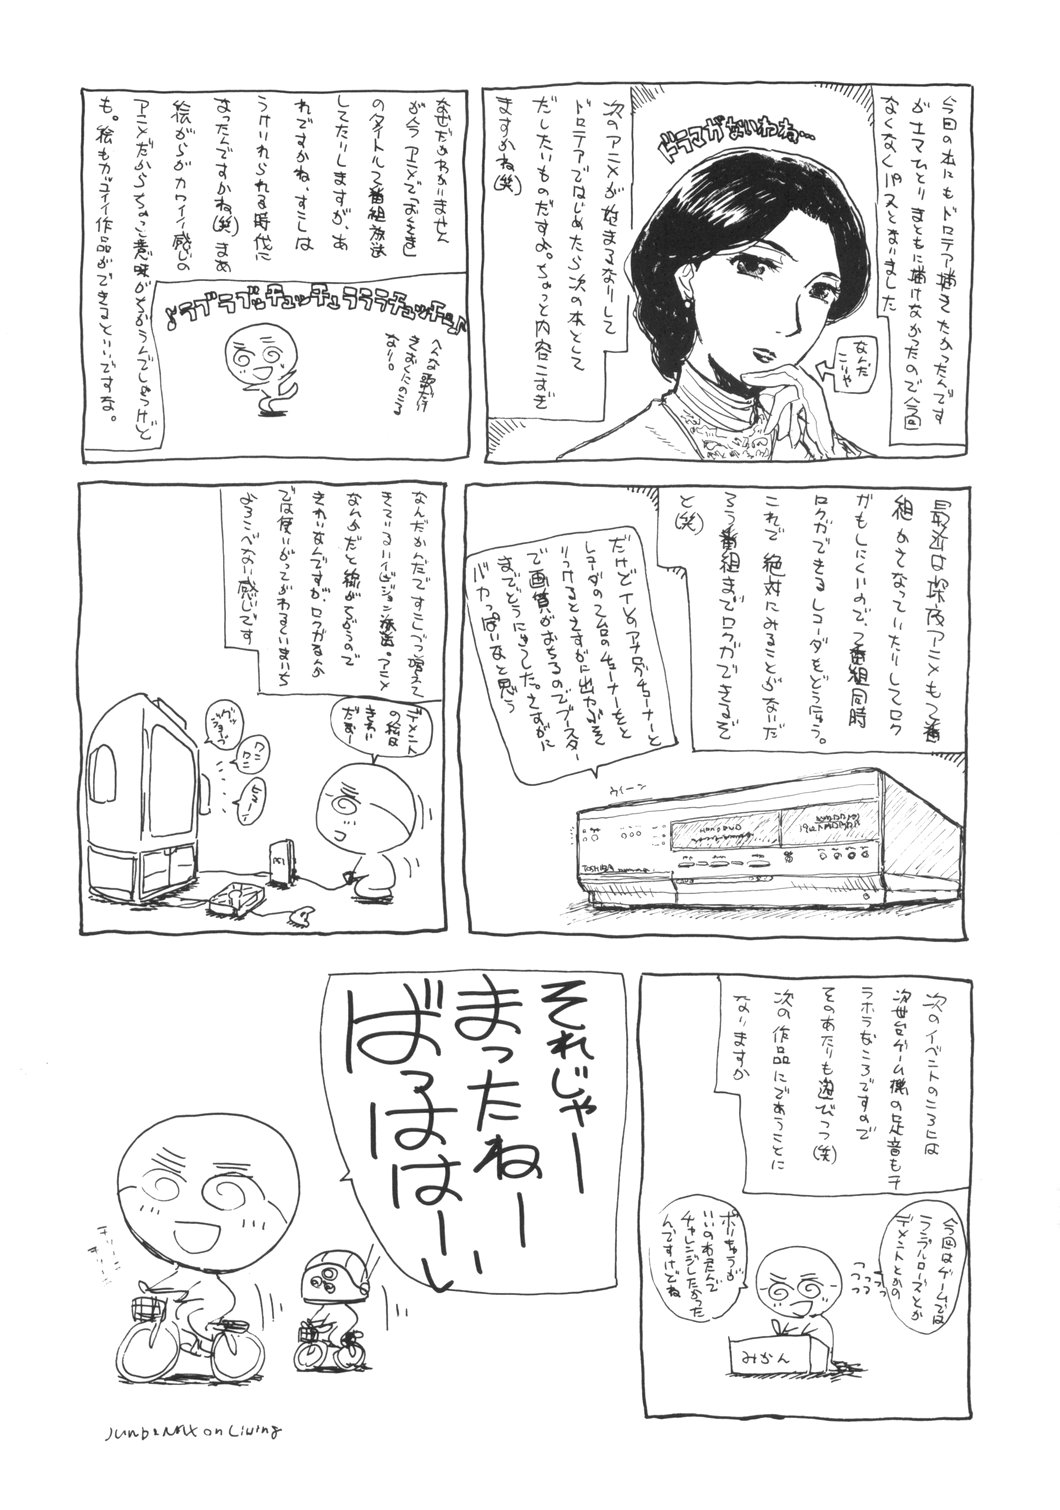 今回の本にもドロテア描きたかったんです
がエマひとりまともに描けなかったので今回
なくなくパスとなりました
ドラマがないわね…
なんだ
こいや
次のアニメが始まるなりして
ドロテアではじめたら次の本として
だしたいものだすよ。ちょっと内容こすぎ
ますかね(笑)
なぜだかわかりません
が今アニメで
のタイトルで番組放送
してたりしますが、あ
れですかね、すこしは
うけいれられる時代に
なったんですかね(笑)まあ
絵がらがカワイイ感じの
アニメだからちょっと意味がちがうんでしょうけど
も。絵もカッコイイ作品ができるといいですな。
♪ラブラブッチュッチュラララチュッチュ♪
へんな歌だけ
きおくにのこる
なり。
最近は深夜アニメも2番
組かさなっていたりしてロク
ガもしにくいので、2番組同時
ロクガできるレコーダをどうにゅう。
これで絶対にみることがないだ
ろう番組までロクガできるぞ
と(笑)
だけどTVのアナログチューナーと
レコーダの2台のチューナーをと
りつけるとさすがに出力ぶそく
で画質がおちるのでブースター
までどうにゅうした。さすがに
バカっぽいなと思う
ウィーン
TOSHIBA
なんだかんだですこしづつ増えて
きているハイビジョン放送。アニメ
なんかだと線がちがうので
きれいなんですが、ロクガなんか
では使いがってがわるくいまいち
よろこべない感じです
デメントの
の絵は
きれい
だなぁー
グッ
ジョーブ
ワン
ワン
ヒューン
次のイベントのころには
次世代ゲーム機の足音もチ
ラホラなころですので
そのあたりも遊びつつ(笑)
次の作品にであうことに
なりますか
今回はゲームでは
ランブルローズとか
デメントとかの
つつつ
つつつ
ポリちゃうが
いいのあたんで
チャレンジしたかった
んですけどね
みかん
それじゃー
まったねーい
ばっはは～い
Junb&Max on Living